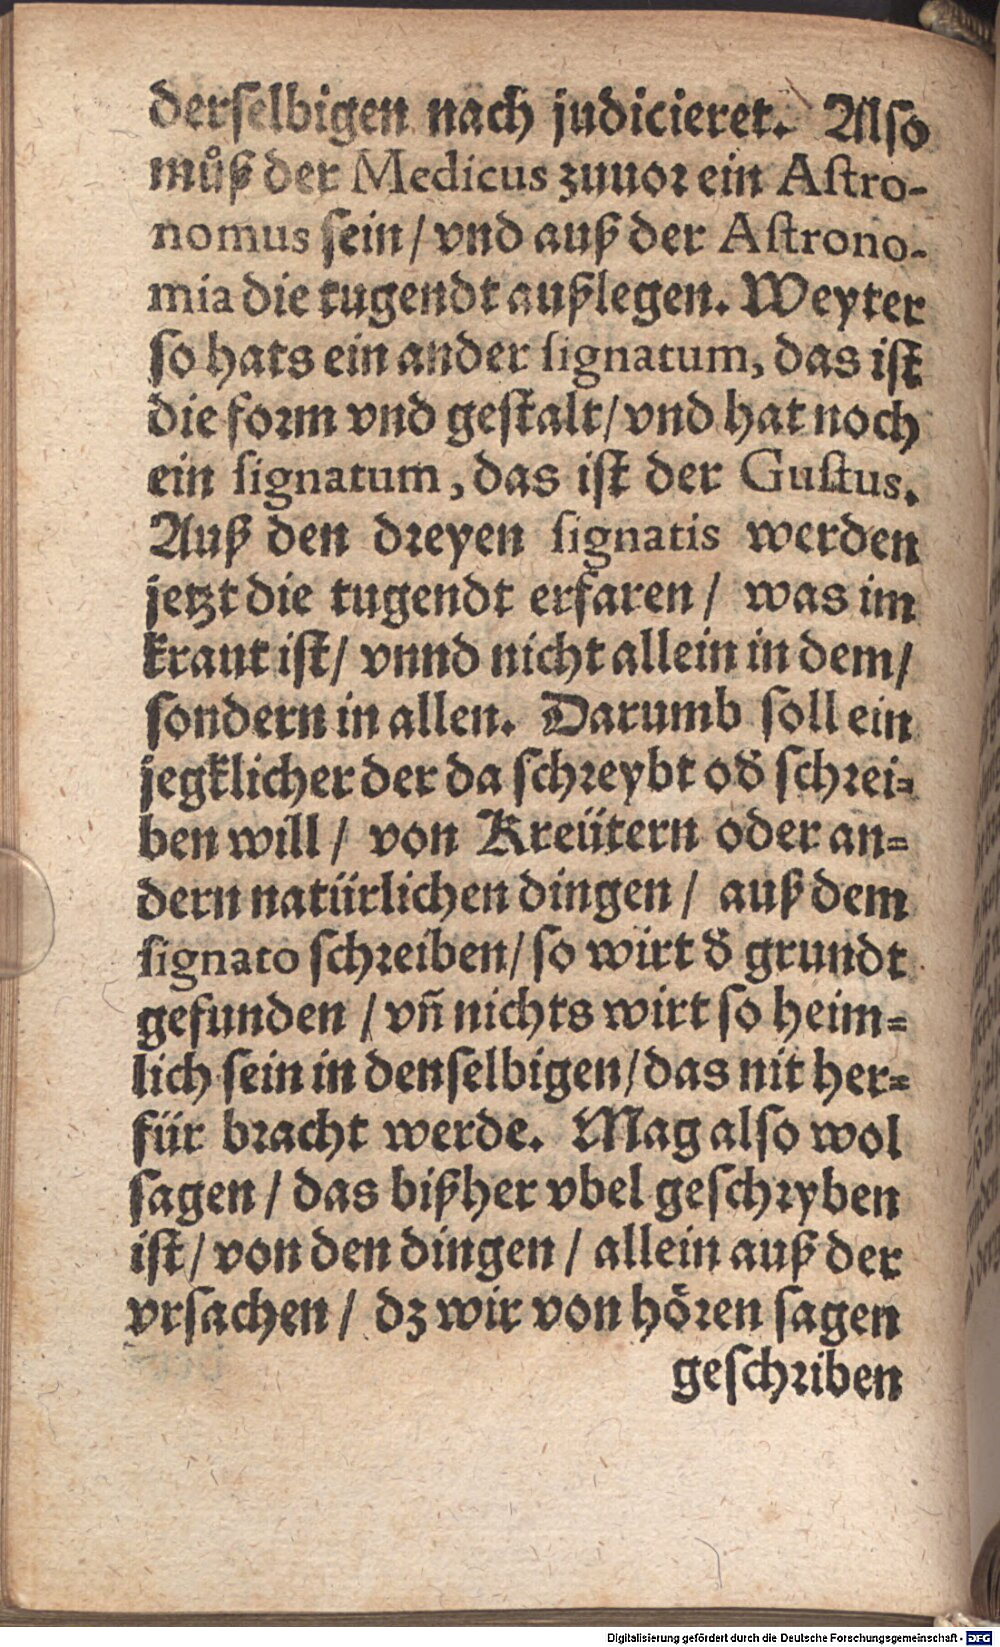 derselbigen nach judicieret. Also
můß der Medicus zuuor ein Astro-
nomus sein / vnd auß der Astrono-
mia die tugendt außlegen. Weyter
so hats ein ander signatum, das ist
die form vnd gestalt / vnd hat noch
ein signatum, das ist der Gustus.
Auß den dreyen signatis werden
jetzt die tugendt erfaren / was im
kraut ist / vnnd nicht allein in dem /
sondern in allen. Darumb soll ein
jegklicher der da schreybt od̕ schrei-
ben will / von Kreütern oder an-
dern natürlichen dingen / auß dem
signato schreiben / so wirt d̕ grundt
gefunden / vñ nichts wirt so heim-
lich sein in denselbigen / das nit her-
für bracht werde. Mag also wol
sagen / das bißher vbel geschryben
ist / von den dingen / allein auß der
vrsachen / dz wir von hören sagen
geschriben
Digitalisierung gefördert durch die Deutsche Forschungsgemeinschaft - DFG